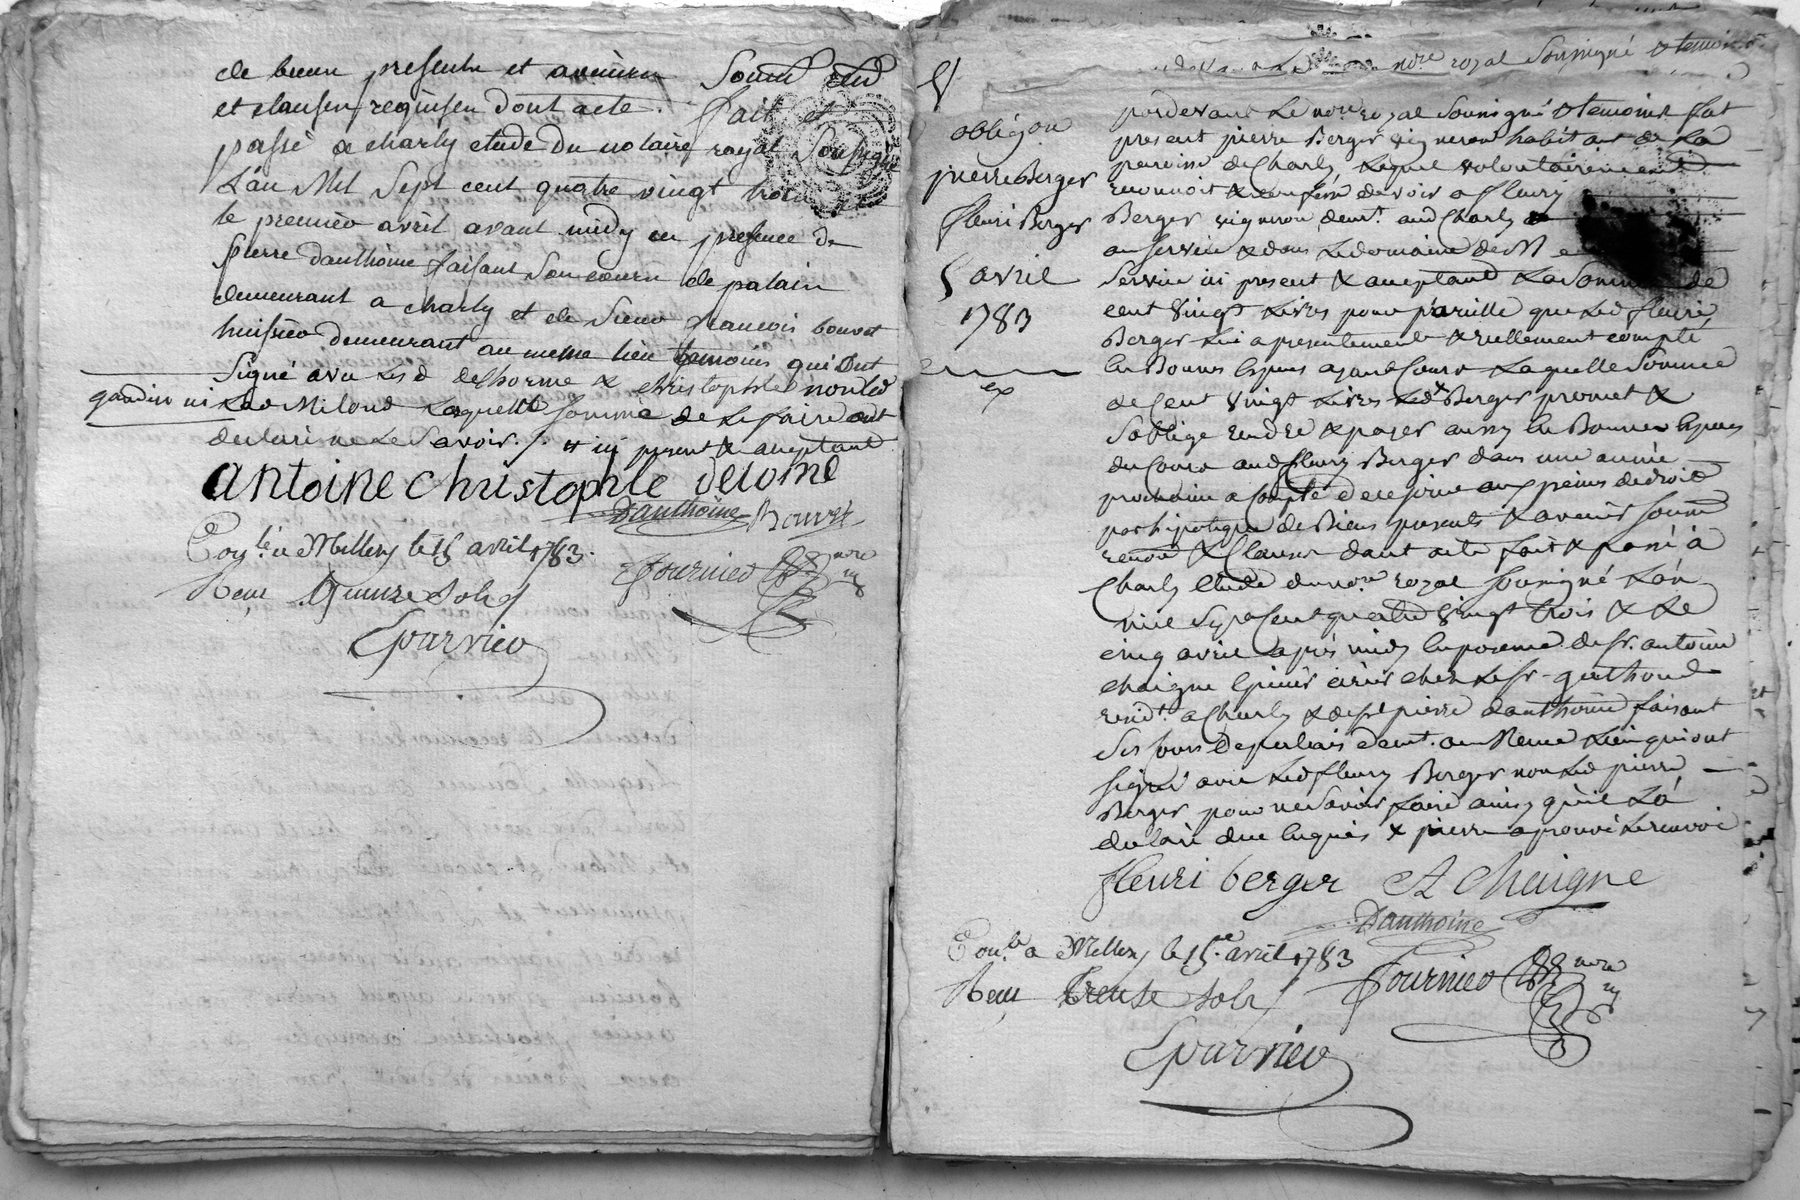 de biens presents et avenirs Soum. rend
et clauses requises dont acte. fait et
passé a charly etude du notaire royal Soussigné
L'an Mil Sept cent quatre vingt trois
le premier avril avant midy en presence de
pierre danthoine faisant Son cours de palais
demeurant a charly et de Sieur francois bouvet
huissier demeurant au meme lieu temoins qui Ont
Signé avec Lesd delhorme & christophle non led
Lad Milond Laquelle Somme de Le faire ont
declaré ne Le Savoir ./. # ici present & acceptant
antoine christophle delome
Danthoine Bouvet
Con.lé a Millery le 15 avril 1783.
Recu quinze Sols
fournier nore
Eparvier
nore royal Soussigné & temoins
obligon
pierre Berger
fleuri Berger
5 avril
1783
ex
pardevant Le nore royal Soussigné & temoins fut
present pierre Berger vigneron habitant de La
paroisse de Charly Lequel volontairement
reconnoit & confesse devoir a fleury
Berger vigneron demt. aud Charly
au service & dans Le domaine de M
Servier ici present & acceptant La Somme de
cent Vingt Livres pour pareille que Led fleuri
Berger Lui a presentement & reellement compté
en Bonnes Especes ayant Cours Laquelle Somme
de Cent Vingt Livres Led Berger promet &
S'oblige rendre & payer aussy En Bonnes Especes
du Cours aud fleury Berger dans une année
prochaine a Compter de ce jour aux peines de droit
par hipoteque de Biens presents & avenir Soum
renon & Clauses dont acte fait & passé à
Charly Etude du nore royal Soussigné L'an
mil Sept Cent quatre Vingt trois & Le
cinq avril après midy En presence de Sr. antoine
chaigne Epicier cirier chez Le Sr.
resid.t a Charly & de Sr pierre danthoine faisant
Ses Cours De palais demt. au Meme Lieu qui ont
Signé avec Led fleury Berger non Led pierre
Berger pour ne Savoir faire ainsy qu'il L'a
declaré due Enquis & pierre aprouvé Le renvoi
fleuri berger A Chaigne
Danthoine
Con.lé a Millery le 15.e avril 1783
Recu treize Sols
fournier nore
Eparvier